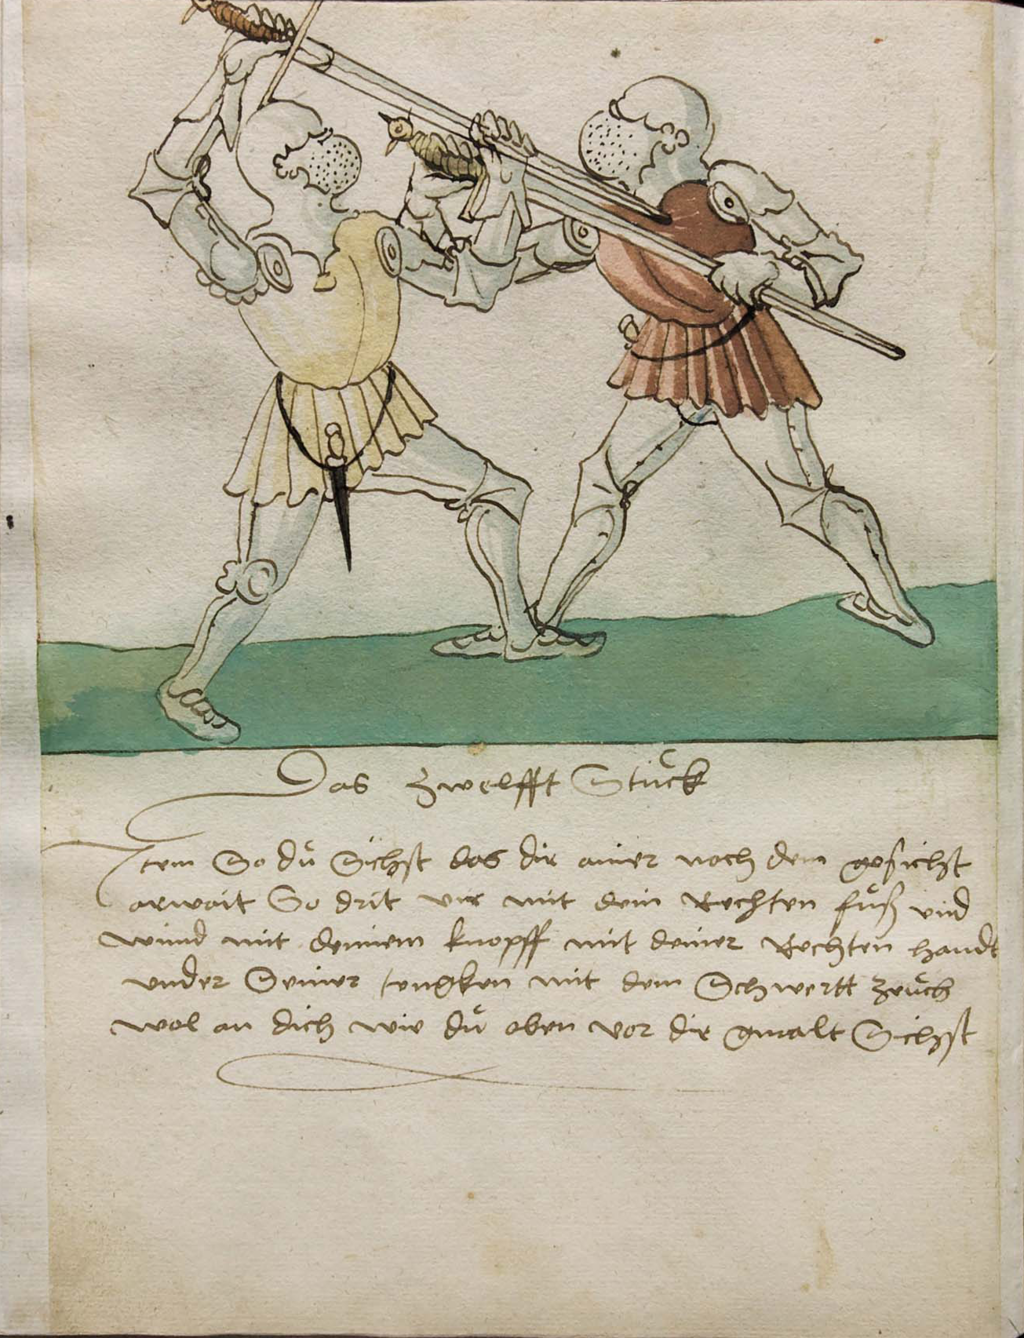 Das Zwelfft Stuck
Item So dű Sichst das dir ainer nach dem gesichst
arwait So drit vir mit dem Rechten fűß vnd
wind mit deinem knopff mit deiner Rechten handt
vnder Seiner lengken mit dem Schwertt zeűch
wol an dich wie dű oben vor dir gmalt Sichst